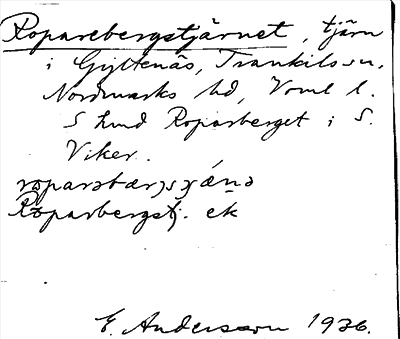 Roparebergstjärnet, tjärn
i Gyltenäs, Trankils sn,
Nordmarks hd, Vrml l.
S hmd Roparberget i S.
Viker.
Roparbergstj. ek
E. Andersson 1936.